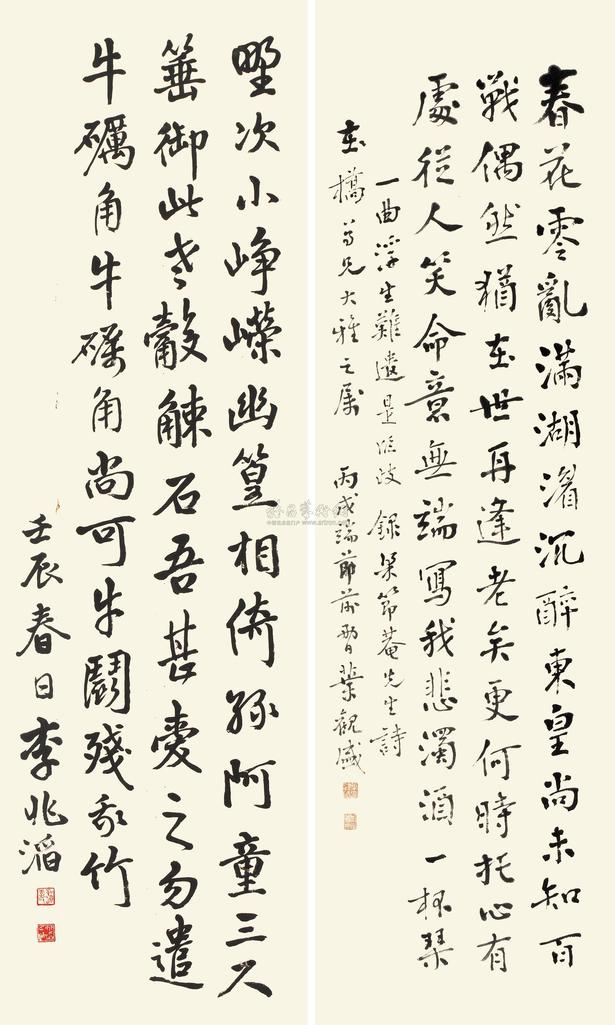 春花零亂滿湖湄沉醉東皇尚未知百
戰偶然猶在世再逢老矣更何時托心有
處從人笑命意無端寫我悲濁酒一杯琴
一曲浮生難遣是臨歧 錄梁節菴先生詩
在橋兄大雅之属 丙戌端節前葉觀盛
野次小崢嶸幽篁相倚綠阿童三尺
箠御此老觳觫石吾甚愛之勿遣
牛礪角牛礪角尚可牛鬪殘我竹
壬辰春日李兆滔